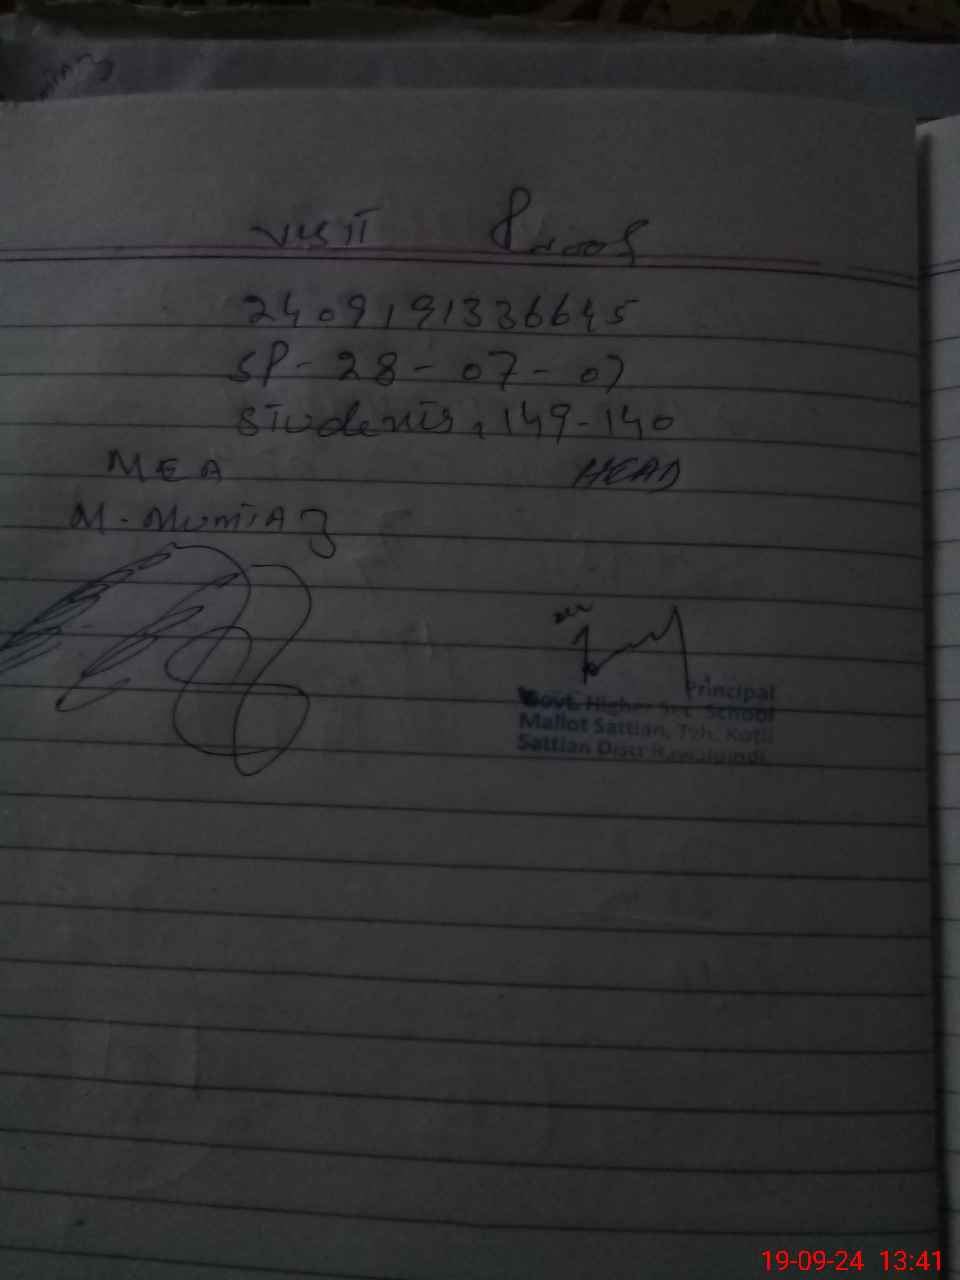 Visit Proof
2409191336645
SP-28-07-07
Students, 149-140
MEA
HEAD
M. Mumtaz
Principal
Govt. Higher Sec School
Mallot Sattian, Teh. Kotli
Sattian Distt Rawalpindi
19-09-24 13:41